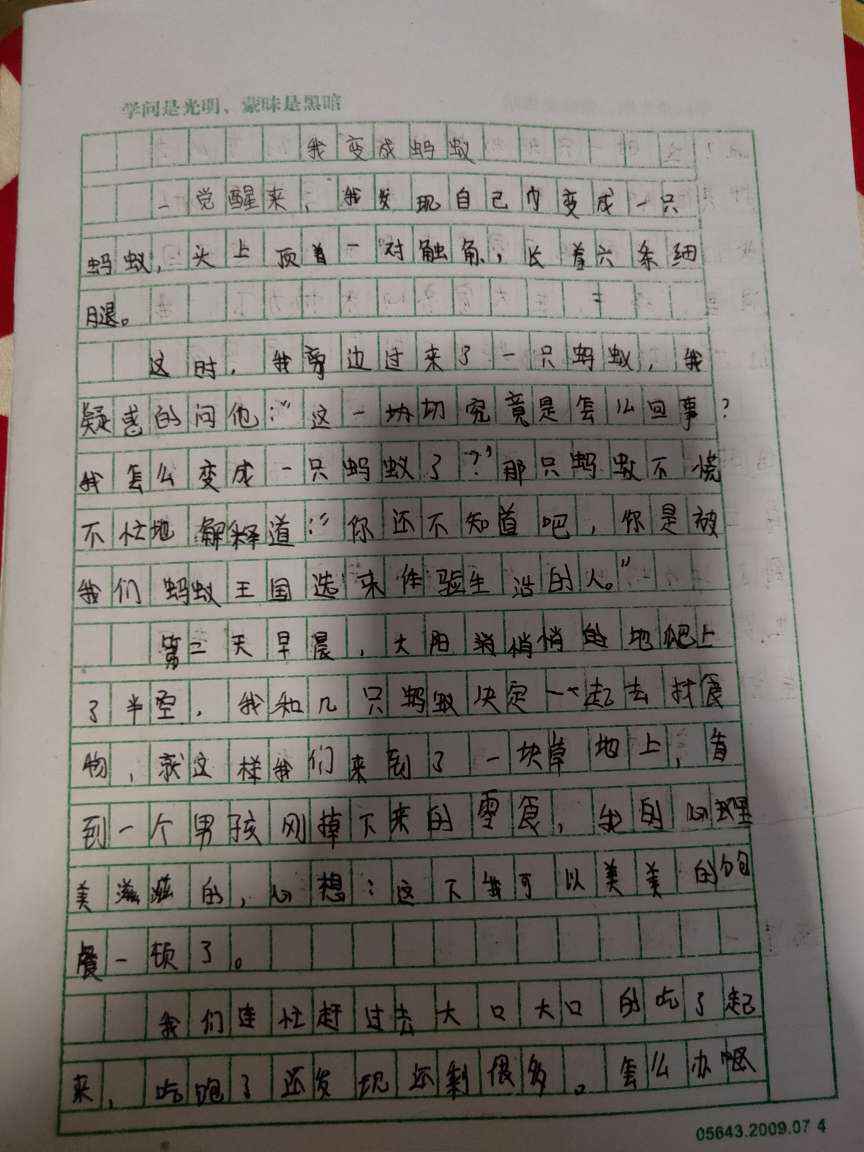 学问是光明、蒙昧是黑暗
我变成蚂蚁
一觉醒来，我发现自己变成一只
蚂蚁，头上顶着一对触角，长着六条细
腿。
这时，我旁边过来了一只蚂蚁，我
疑惑的问他：“这一切究竟是怎么回事？
我怎么变成一只蚂蚁了？”那只蚂蚁不慌
不忙地解释道：“你还不知道吧，你是被
我们蚂蚁王国选来体验生活的人。”
第二天早晨，太阳悄悄地爬上
了半空，我和几只蚂蚁决定一起去找食
物，就这样我们来到了一块草地上，看
到一个男孩刚掉下来的零食，我的心理
美滋滋的，心想：这下我可以美美的饱
餐一顿了。
我们连忙赶过去大口大口的吃了起
来，吃饱了还发现还剩很多。怎么办呢
05643.2009.07 4